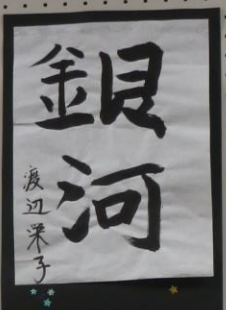 銀河
渡辺栄子